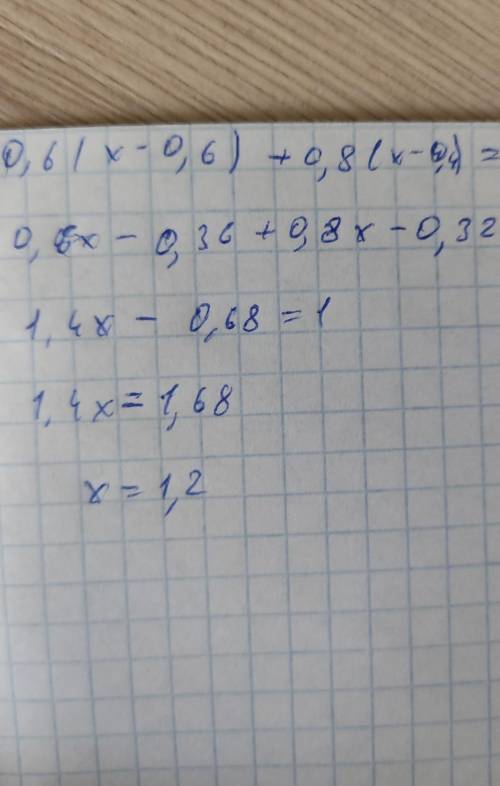 0,6(x-0,6) +0,8(x-0,4)=
0,6x - 0,36+0,8x-0,32
1,4x - 0,68=1
1,4x=1,68
x=1,2